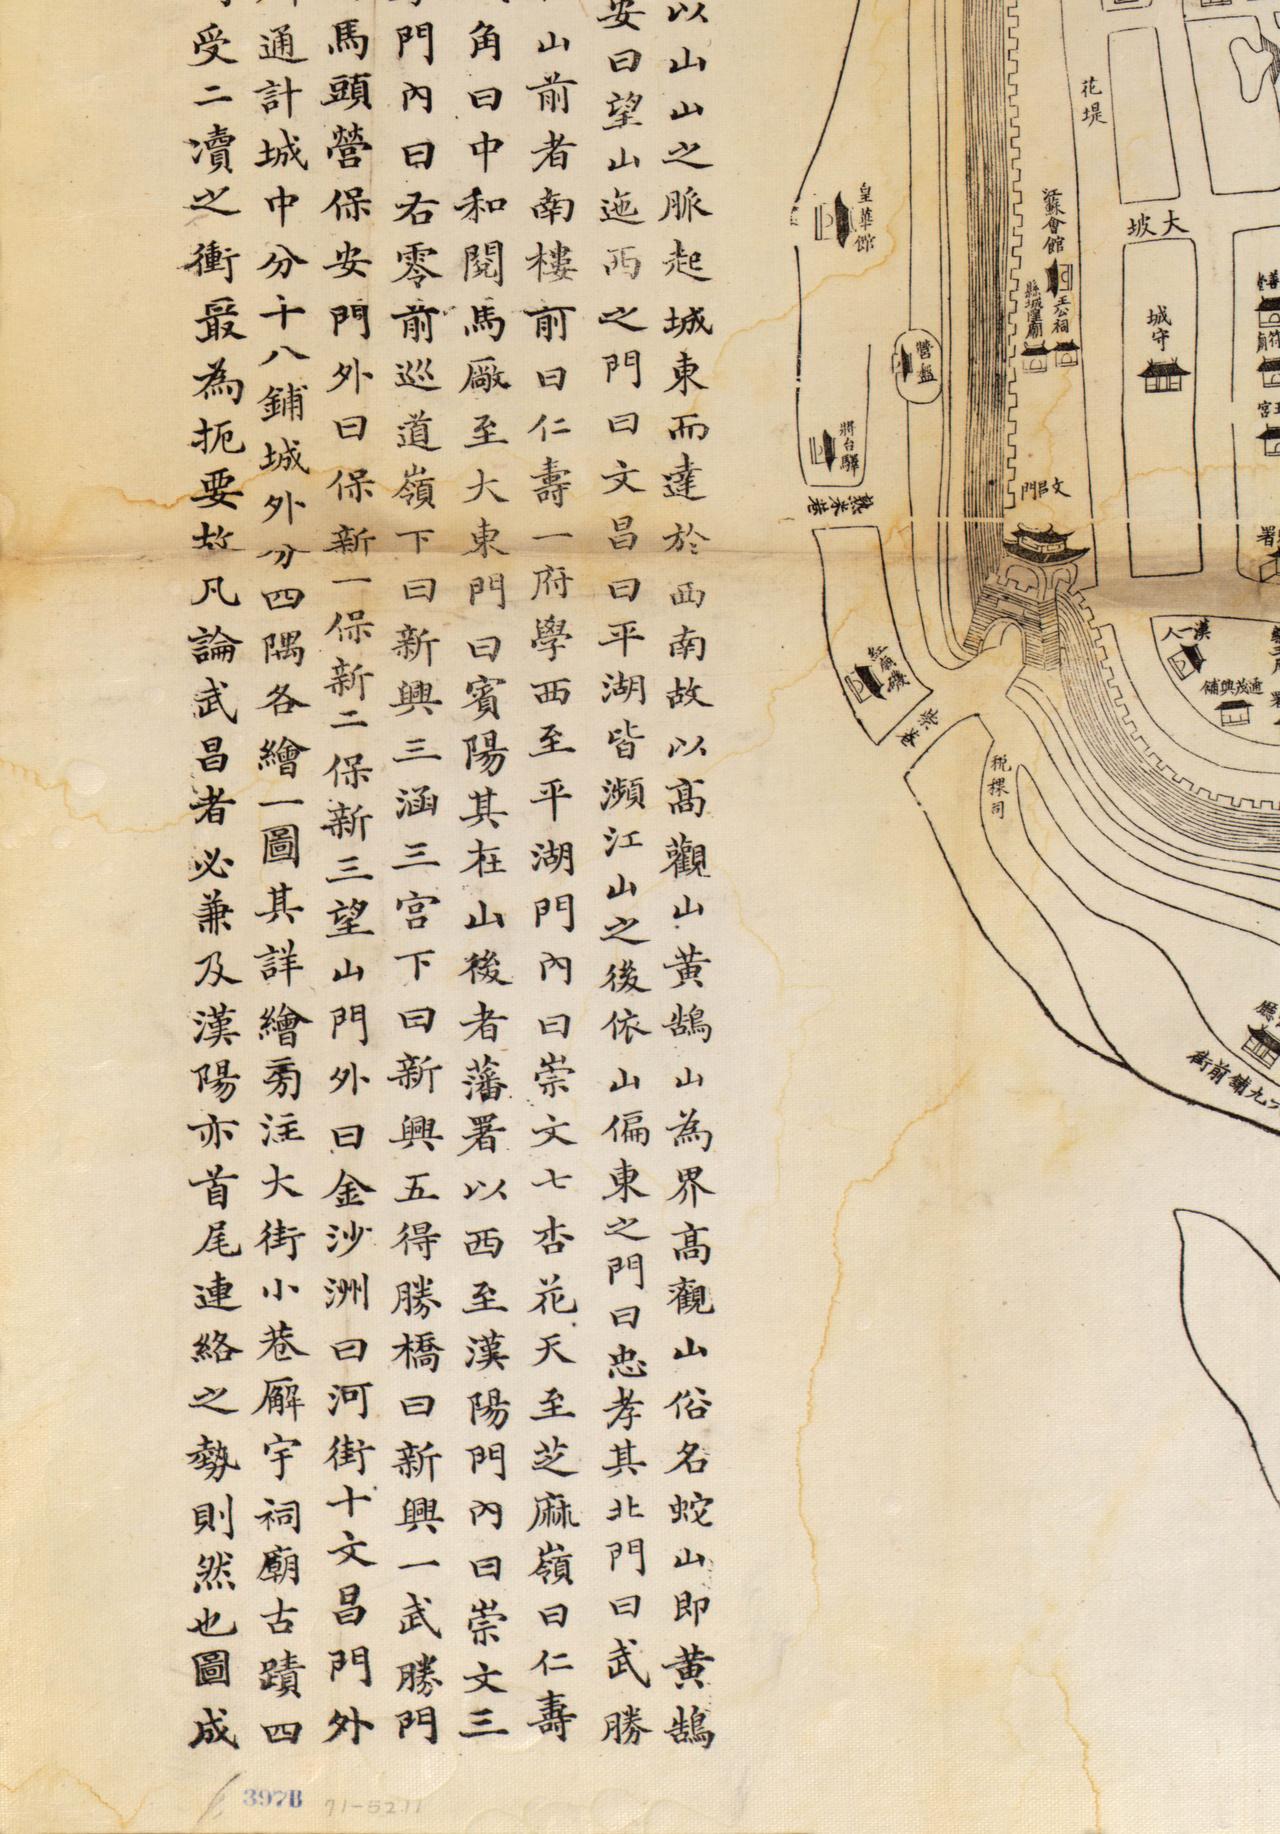 以山山之脈起城東而達於西南故以高觀山黃鵠山為界高觀山俗名蛇山即黃鵠
安曰望山迤西之門曰文昌曰平湖皆瀕江山之後依山偏東之門曰忠孝其北門曰武勝
山前者南樓前曰仁壽一府學西至平湖門內曰崇文七杏花天至芝麻嶺曰仁壽
角曰中和閱馬廠至大東門曰賓陽其在山後者藩署以西至漢陽門內曰崇文三
門內曰右零前巡道嶺下曰新興三涵三宮下曰新興五得勝橋曰新興一武勝門
馬頭營保安門外曰保新一保新二保新三望山門外曰金沙洲曰河街十文昌門外
通計城中分十八鋪城外分四隅各繪一圖其詳繪旁注大街小巷廨宇祠廟古蹟四
受二瀆之衝最為扼要故凡論武昌者必兼及漢陽亦首尾連絡之勢則然也圖成
花堤
江蘇會館
皇華館
大坡
王公祠
縣城隍廟
城守
營盤
將台驛
文昌門
熟米巷
署
漢一人
紅廟磯
通茂興鋪
紫巷
稅課司
廳
九鋪前街
397B
71-5211